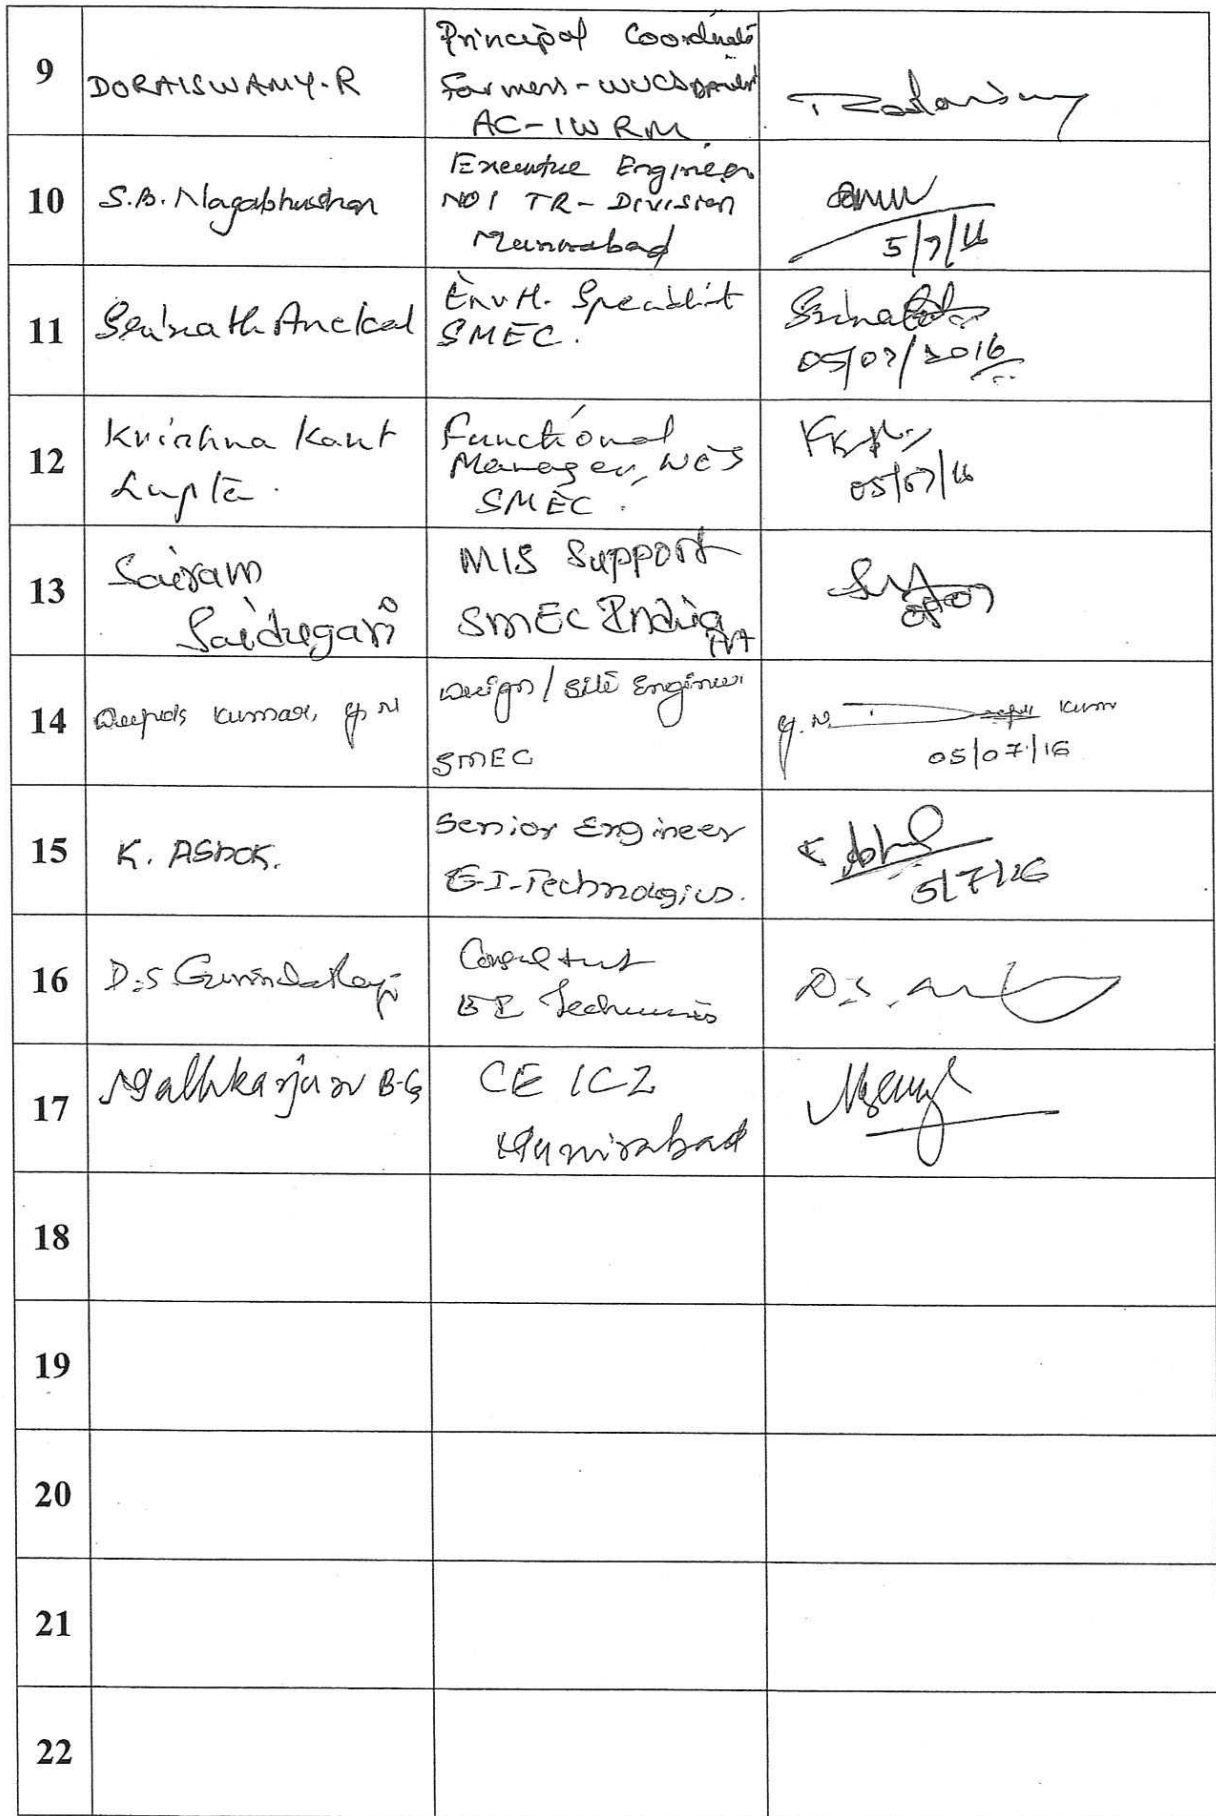 9
DORAISWAMY.R
Principal Coordinato
Farmers - WUCS
AC-IWRM
10
S.B. Nagabhushan
Executive Engineer
NO1 TR- Division
Munirabad
5/7/16
11
Srinath Anekal
Envtl. Specialist
SMEC.
05/07/2016
12
Krishna Kant
Gupta.
Functional
Manager, WCS
SMEC.
05/07/16
13
Sairam
Saidugari
MIS Support
SMEC India
14
Deepak Kumar, G.N
Design / Site Engineer
SMEC
G.N. Kumar
05/07/16
15
K. ASHOK.
Senior Engineer
EI-Technologies.
5/7/16
16
D.S. Govindaraj
Consultant
EI Technologies
D.S.
17
Mallikarjun B-G
CE ICZ
Munirabad
18
19
20
21
22